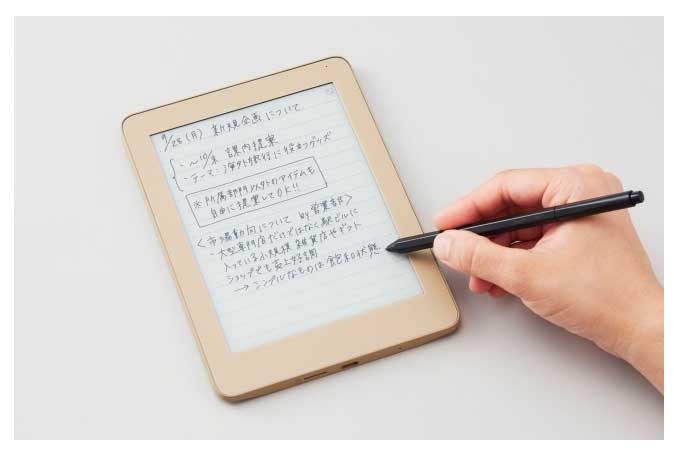 9/28(月) 新規企画について
・〜10/末 課内提案
・テーマ:海外旅行に役立つグッズ
※所属部門以外のアイテムも
自由に提案してOK!!
<市場動向について by営業部>
・大型専門店だけではなく駅ビルに
入っている小規模雑貨店やネット
ショップでも売上好調
→シンプルなものは飽和状態